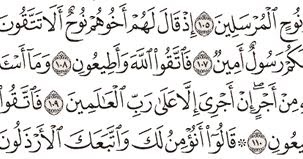 نُوحٍ ٱلْمُرْسَلِينَ ١٠٥ إِذْ قَالَ لَهُمْ أَخُوهُمْ نُوحٌ أَلَا تَتَّقُونَ
كُمْ رَسُولٌ أَمِينٌ ١٠٧ فَٱتَّقُوا۟ ٱللَّهَ وَأَطِيعُونِ ١٠٨ وَمَآ أَسْـَٔ
مِنْ أَجْرٍ ۖ إِنْ أَجْرِىَ إِلَّا عَلَىٰ رَبِّ ٱلْعَـٰلَمِينَ ١٠٩ فَٱتَّقُوا۟
يعُونِ ١١٠ ۞ قَالُوٓا۟ أَنُؤْمِنُ لَكَ وَٱتَّبَعَكَ ٱلْأَرْذَلُونَ